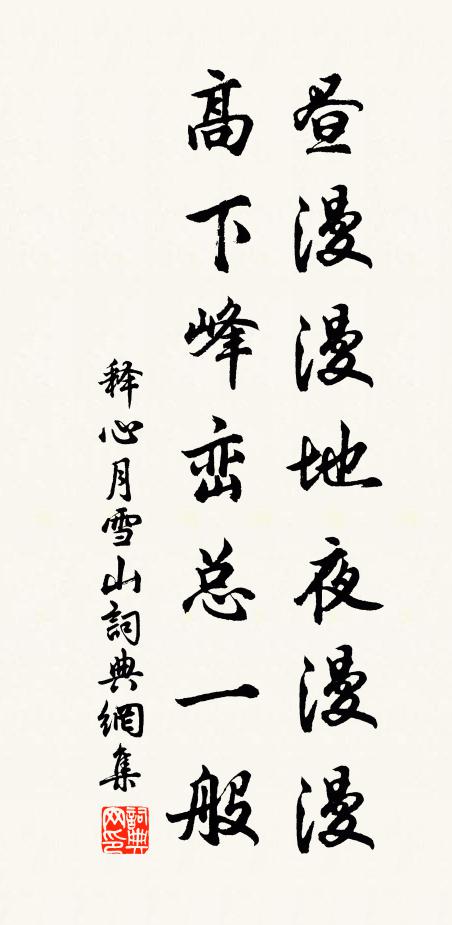 昼漫漫地夜漫漫
高下峰峦总一般
释心月雪山詞典網集
詞典網印